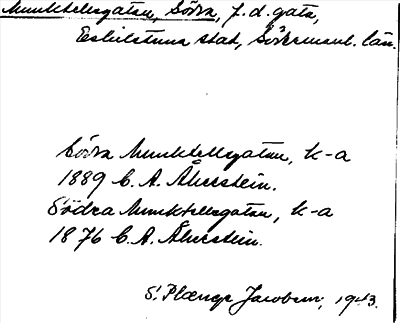 Munktellsgatan, Södra, f.d. gata,
Eskilstuna stad, Södermanl. län.
Södra Munktellsgatan, k-a
1889 C. A. Åkerstein.
Södra Munktellsgatan, k-a
1876 C. A. Åkerstein.
S. Plænge Jacobson, 1943.